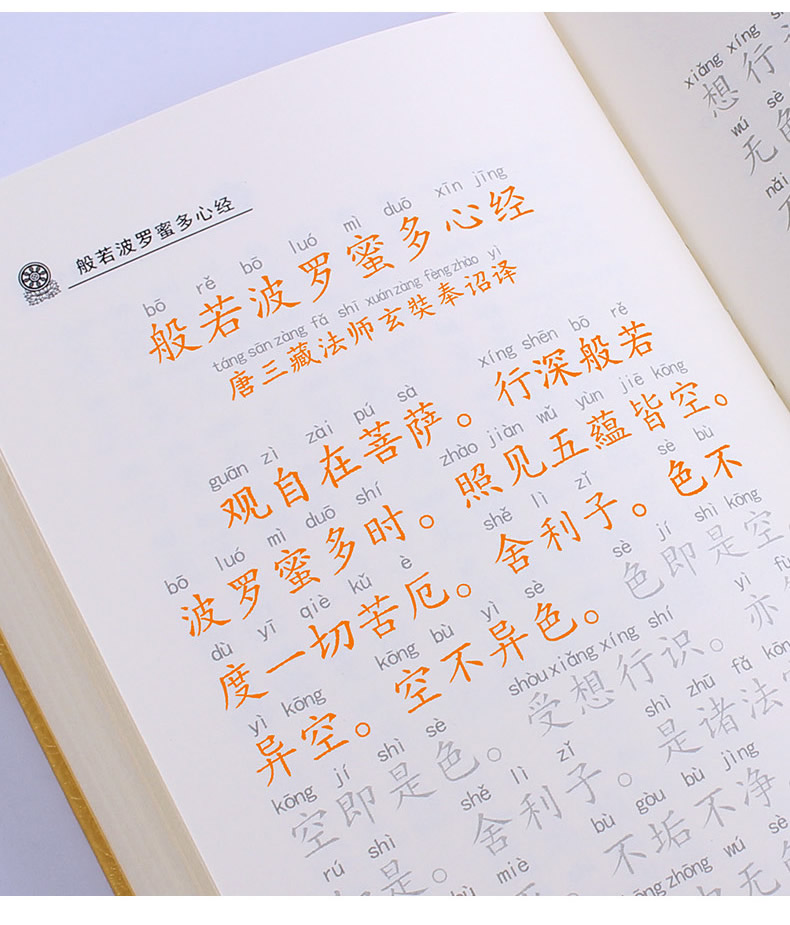 般若波罗蜜多心经
bō rě bō luó mì duō xīn jīng
般若波罗蜜多心经
táng sān zàng fǎ shī xuánzàng fèngzhào yì
唐三藏法师玄奘奉诏译
guān zì zài pú sà xíng shēn bō rě
观自在菩萨。行深般若
bō luó mì duō shí zhào jiàn wǔ yùn jiē kōng
波罗蜜多时。照见五蘊皆空。
dù yī qiè kǔ è shě lì zǐ sè bù
度一切苦厄。舍利子。色不
yì kōng kōng bù yì sè sè jí shì kōng
异空。空不异色。色即是空。
kōng jí shì sè shòu xiǎng xíng shí yì
空即是色。受想行识。亦
rú shì shě lì zǐ shì zhū fǎ kōng
是。舍利子。是诸法
bù miè bù gòu bù jìng
不垢不净
zhōng wú sè
无色
xiǎng xíng
想行
wú sè
无色
nǎi